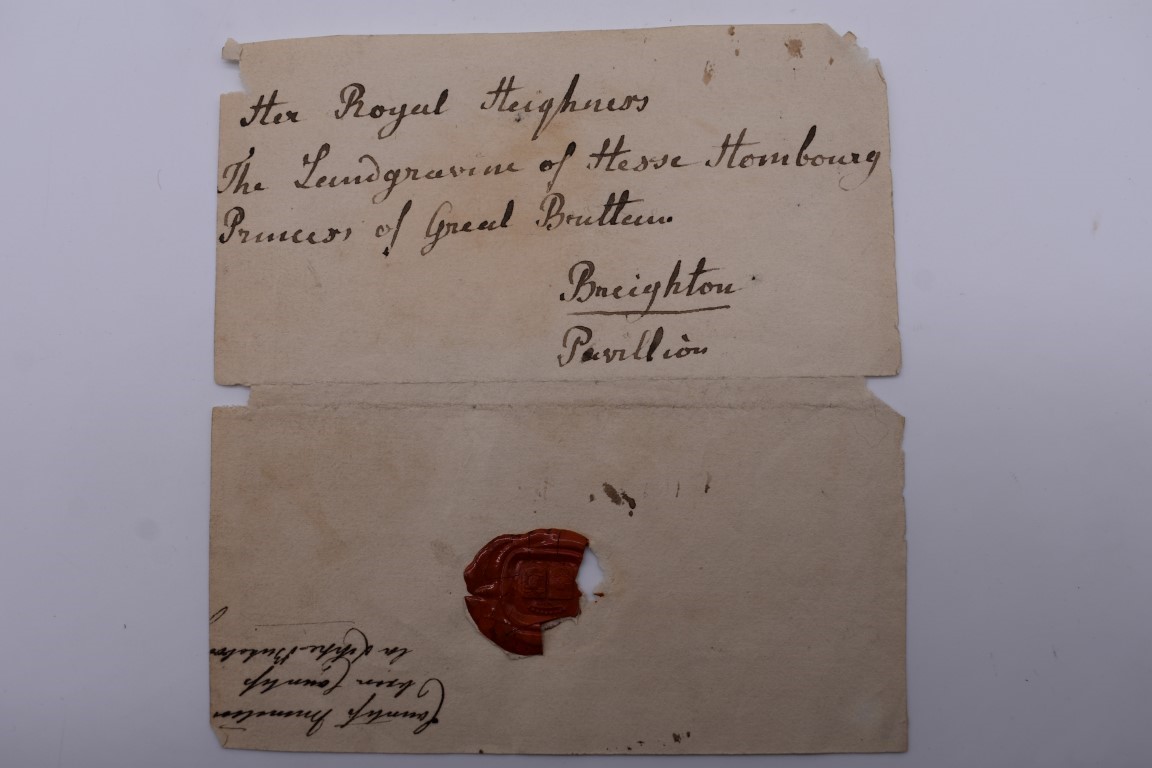 Her Royal Heighness
The Landgravine of Hesse Hombourg
Princess of Great Brittain
Breighton
Pavillion
Countess
Countess
la